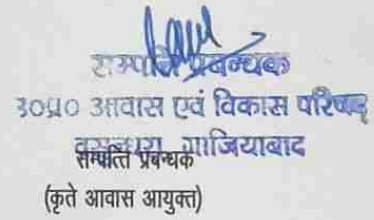 सम्पत्ति प्रबन्धक
उ०प्र० आवास एवं विकास परिषद्
वसुन्धरा गाजियाबाद
सम्पत्ति प्रबन्धक
(कृते आवास आयुक्त)